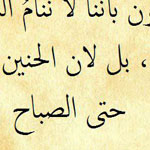 بأننا لا ننام
، بل لان الحنين
حتى الصباح